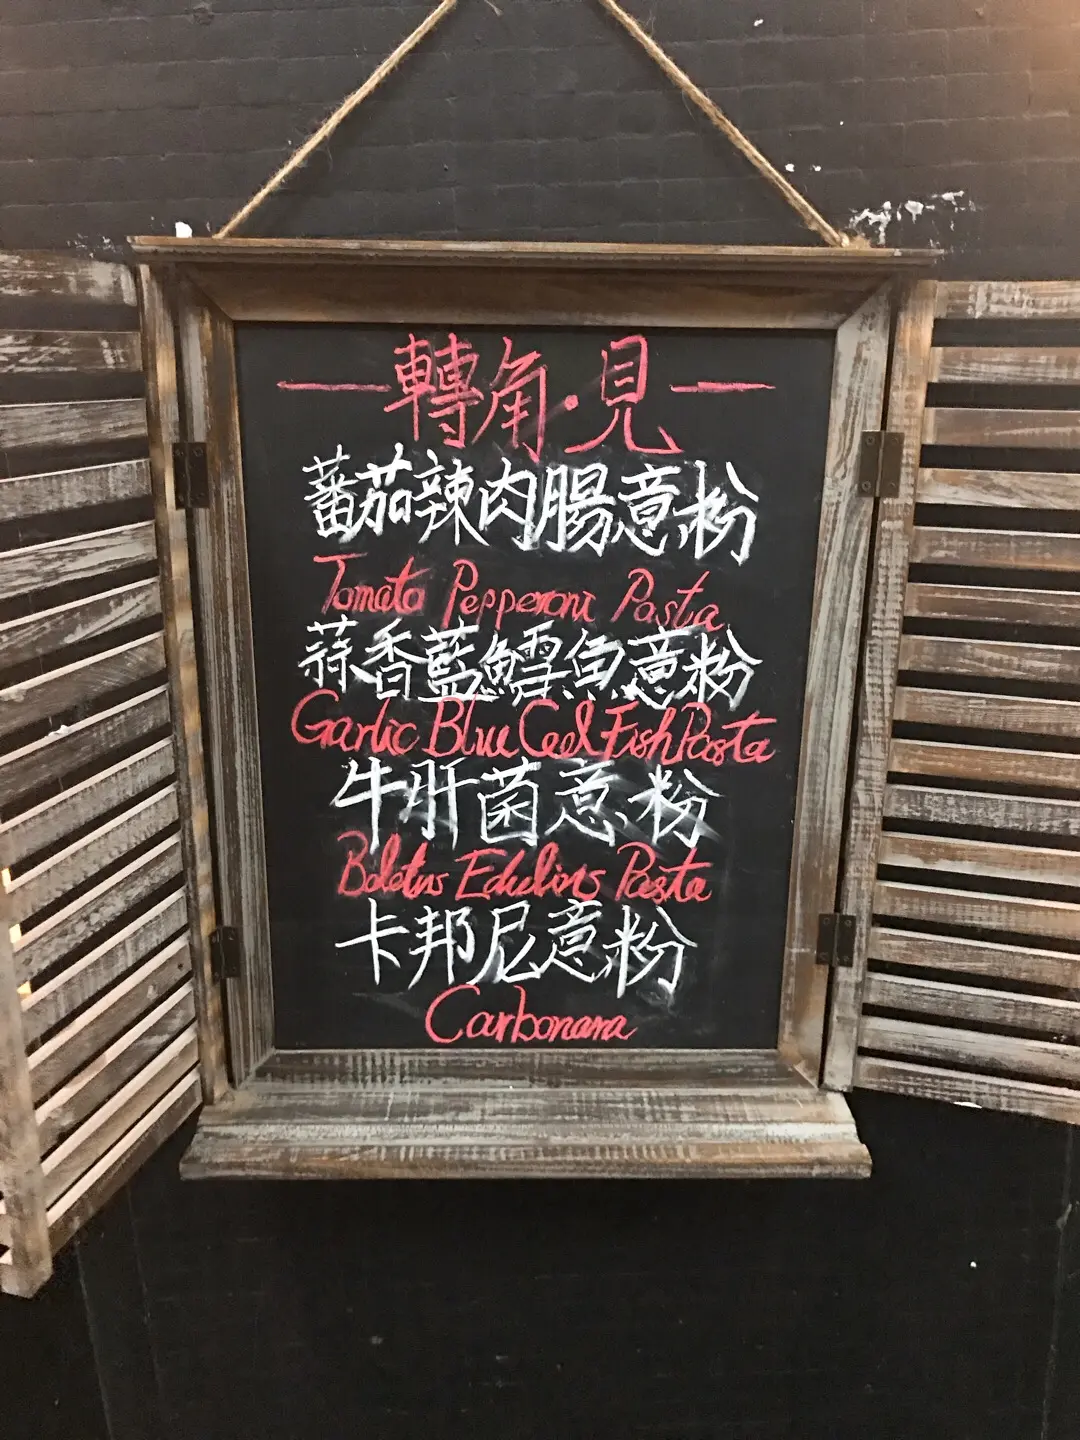 轉角·見
蕃茄辣肉腸意粉
Tomato Pepperoni Pasta
蒜香藍鱈魚意粉
Garlic Blue Cod Fish Pasta
牛肝菌意粉
Boletus Edulins Pasta
卡邦尼意粉
Carbonara